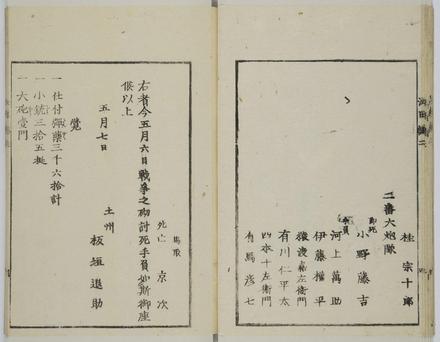 桂宗十郎
二番大炮隊
即死
小野藤吉
手負
河上萬助
伊藤楢平
猿渡 左衛門
有川仁平太
四本十左衛門
有馬彦七
馬取
死亡 京次
右者今五月六日戰爭之砌討死手負如斯御座
候以上
五月七日
土州
板垣退助
覚
一仕付弾薬三千六拾計
一小銃三拾五挺
一大砲壹門